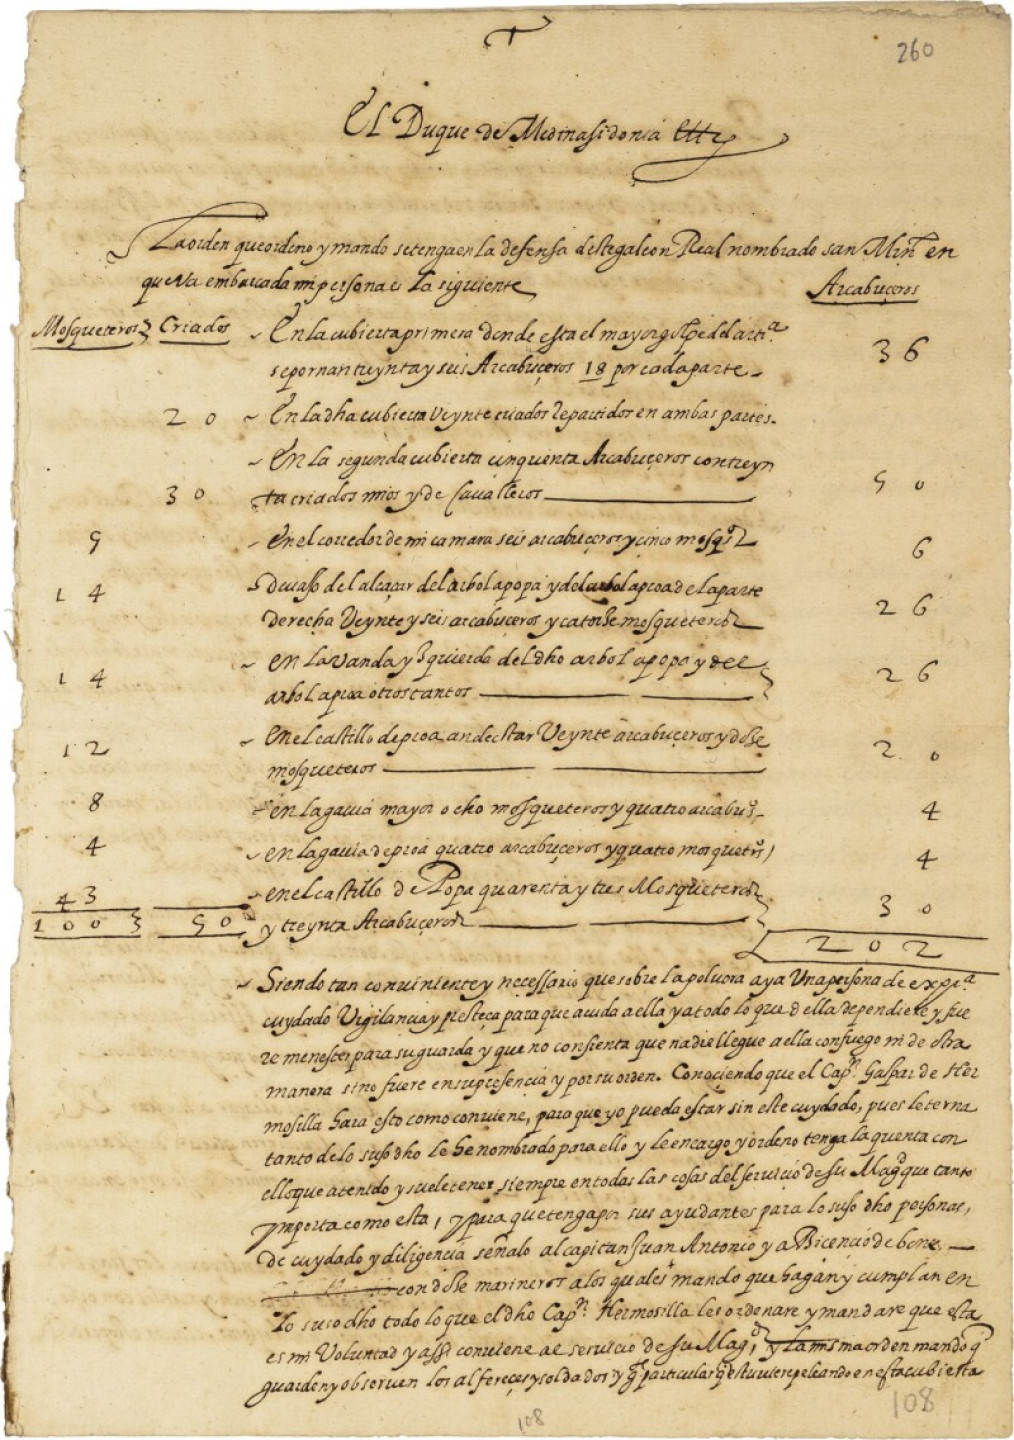 260
El Duque de Medinasidonia Ett
La orden que ordeno y mando se tenga en la defensa deste galeon Real nombrado san Mrn en
que va embarcada mi persona es la siguiente
Arcabuçeros
Mosqueteros Criados ~ En la cubierta primera donde esta el mayor golpe del artia
se pornan treynta y seis Arcabuçeros 18 por cada parte 36
20 ~ En la dha cubierta Veynte criados Repartidos en ambas partes.
~ En la segunda cubierta cinquenta Arcabuçeros con treyn
30 ta criados mios y de Cavalleros 50
5 ~ En el corredor de mi camara seis arcabuçeros y cinco mosqos 6
14 ~ Devaxo del alcaçar del arbol a popa y del arbol a proa de la parte
derecha Veynte y seis arcabuçeros y catorze mosqueteros 26
~ en la vanda yzquierda del dho arbol a popa y del
14 arbol a proa otros tantos 26
12 ~ en el castillo de proa an de estar Veynte arcabuçeros y doze 20
mosqueteros
8 ~ en la gavia mayor ocho mosqueteros y quatro arcabuos 4
4 ~ en la gavia de proa quatro arcabuçeros y quatro mosqueters 4
43 ~ en el castillo de Popa quarenta y tres Mosqueteros
100 50 y treynta Arcabuçeros 30
202
~ Siendo tan conviniente y necessario que sobre la polvora aya Una persona de expa
cuydado Vigilancia y presteça para que acuda a ella y a todo lo que della dependiere y fue
re menester para su guarda y que no consienta que nadie llegue a ella con fuego ni de otra
manera sino fuere en su presencia y por su orden. Conociendo que el Capn Gaspar de Her
mosilla hara esto como conviene, para que yo pueda estar sin este cuydado, pues le terna
tanto de lo suso dho le he nombrado para ello y le encargo y ordeno tenga la quenta con
ello que a tenido y suele tener siempre en todas las cosas del servicio de su Magd que tanto
ymporta como esta, y para que tenga por sus ayudantes para lo suso dho personas,
de cuydado y diligencia señalo al capitan Juan Antonio y a Bicencio de bone
con doze marineros a los quales mando que hagan y cumplan en
lo suso dho todo lo que el dho Capn Hermosilla les ordenare y mandare que esta
es mi Voluntad y assi conviene al servicio de su Magd, y la misma orden mando q
guarden y observen los alfereçes y soldados y g particular q estuviere peleando en esta cubierta
108
108